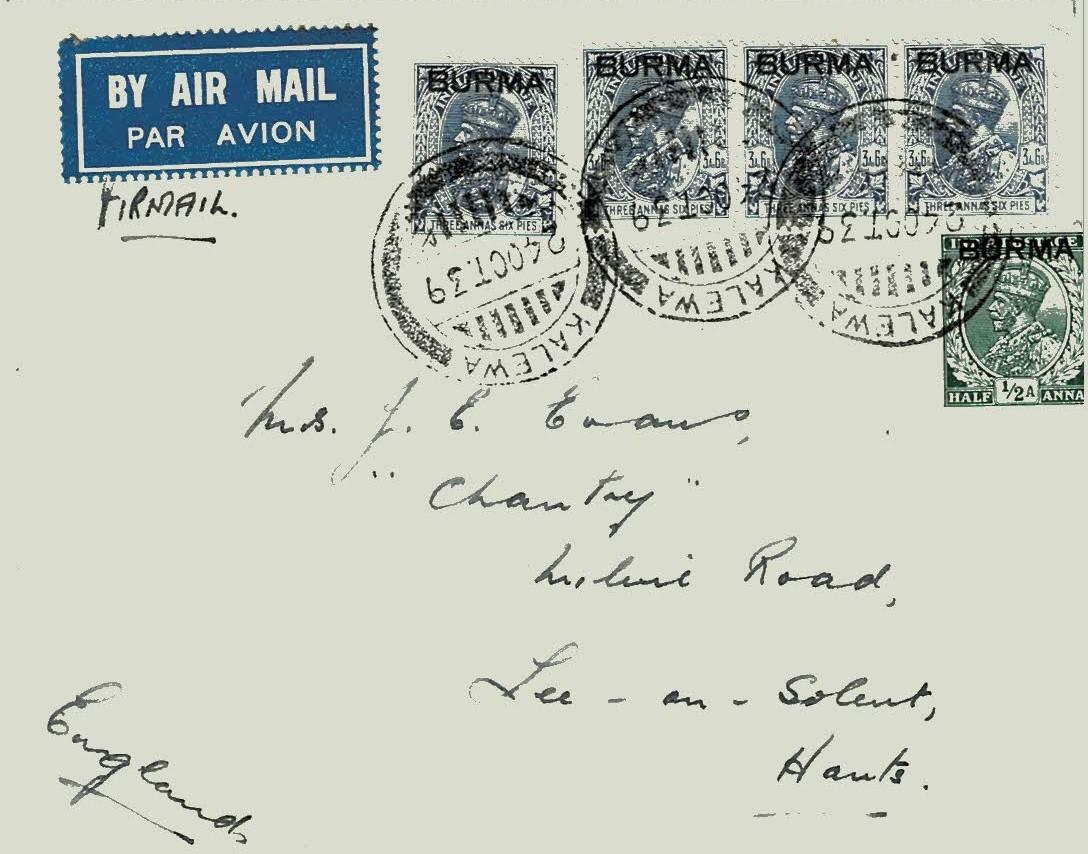 BY AIR MAIL
PAR AVION
AIRMAIL.
BURMA
THREE ANNAS SIX PIES
BURMA
3A6P 3A6P
THREE ANNAS SIX PIES
BURMA
3A6P 3A6P
THREE ANNAS SIX PIES
BURMA
3A6P 3A6P
THREE ANNAS SIX PIES
BURMA
HALF 1/2A ANNA
KALEWA
24 OCT.39
KALEWA
24 OCT.39
KALEWA
24 OCT.39
Mrs. J. E. Evans,
"Chantry"
Milvil Road,
Lee-on-Solent,
Hants.
England